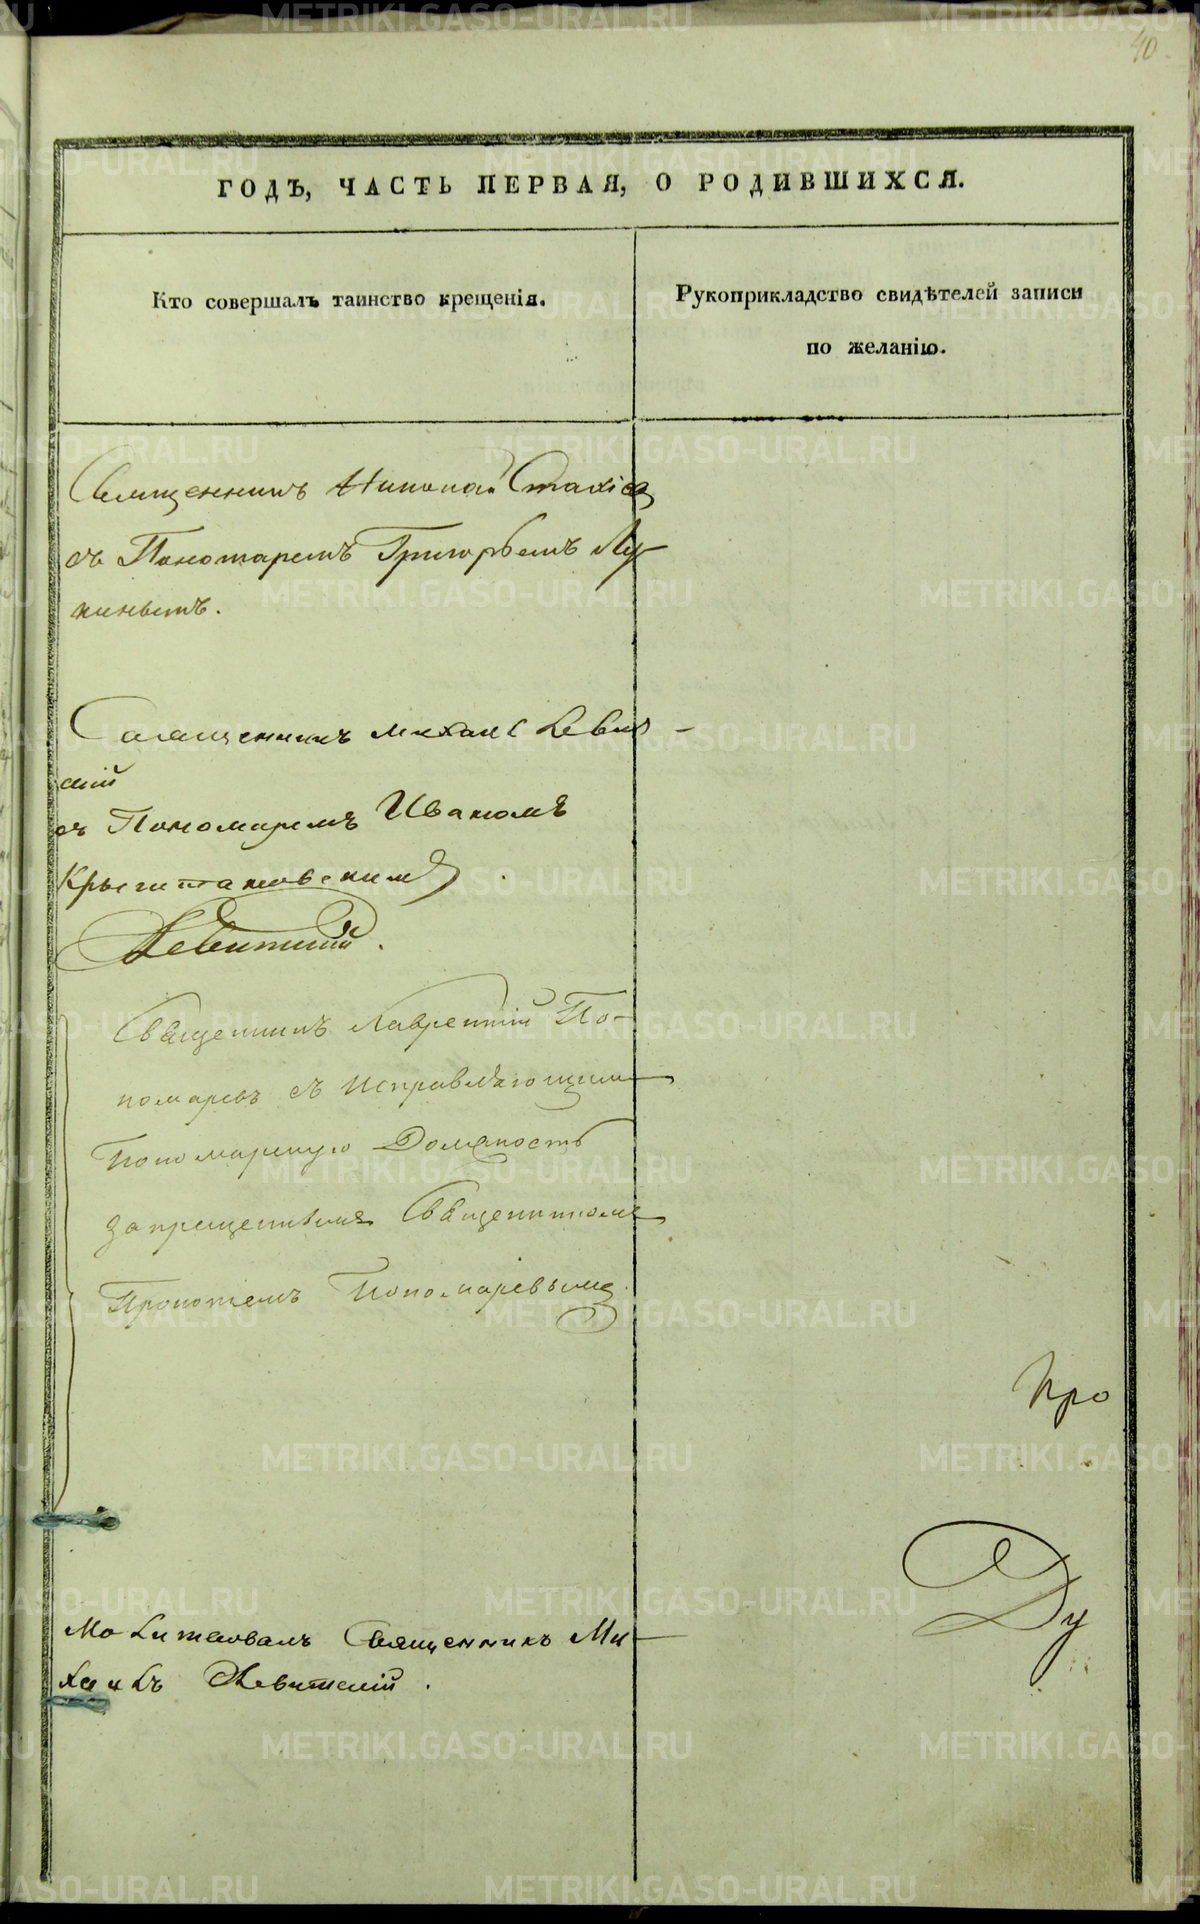 40.
ГОДЪ, ЧАСТЬ ПЕРВАЯ, О РОДИВШИХСЯ.
Кто совершалъ таинство крещенія.
Рукоприкладство свидѣтелей записи
по желанію.
Священникъ Николай Стахіев
съ Пономаремъ Григорьемъ Лу-
кинымъ.
Священникъ Михаилъ Левит-
скій
съ Пономаремъ Иваномъ
Левитскій.
Священникъ Лаврентій По-
номаревъ съ исправляющимъ
Пономарскую Должность
запрещеннымъ Священникомъ
Прокопіемъ Пономаревымъ
Про
Молитвовалъ Священникъ Ми-
хаилъ Левитскій.
Ду
METRIKI.GASO-URAL.RU